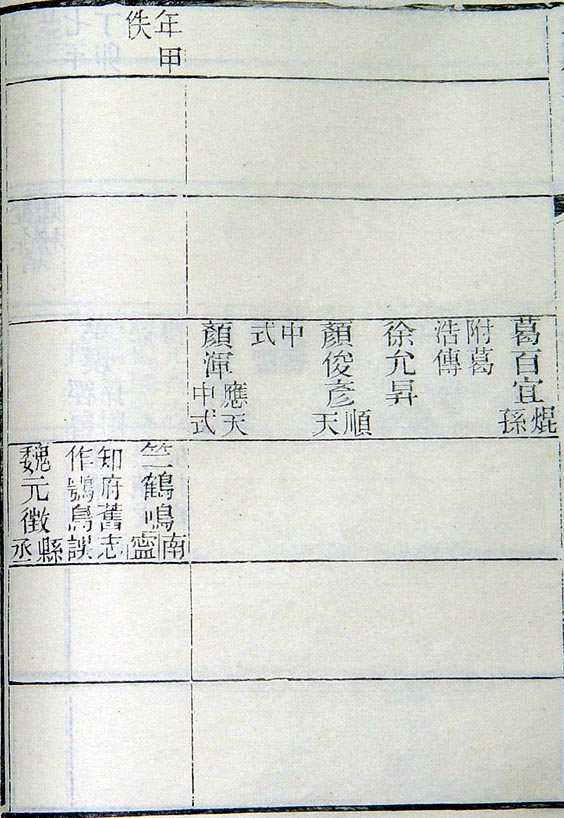 年甲
佚
葛百宜焜
孫
附葛
浩傳
徐允昇
顏俊彥順
天
中
式
顏渾應天
中式
竺鶴鳴南
寧
知府舊志
作鳥誤
魏元徵縣
丞